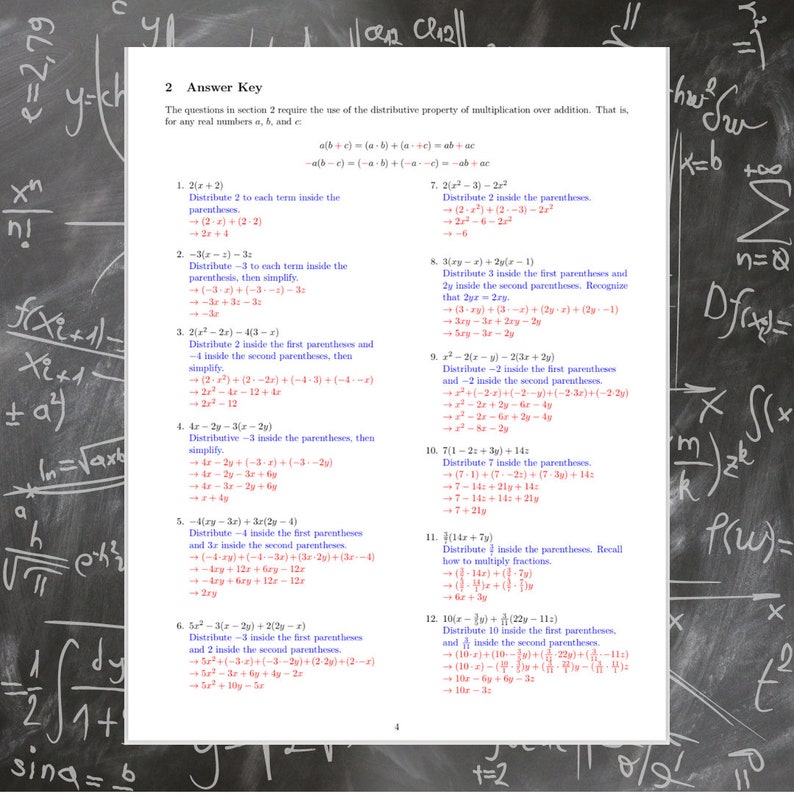 2 Answer Key
The questions in section 2 require the use of the distributive property of multiplication over addition. That is,
for any real numbers a, b, and c:
a(b + c) = (a · b) + (a · +c) = ab + ac
−a(b − c) = (−a · b) + (−a · −c) = −ab + ac
1. 2(x + 2)
Distribute 2 to each term inside the
parentheses.
→ (2 · x) + (2 · 2)
→ 2x + 4
2. −3(x − z) − 3z
Distribute −3 to each term inside the
parenthesis, then simplify.
→ (−3 · x) + (−3 · −z) − 3z
→ −3x + 3z − 3z
→ −3x
3. 2(x² − 2x) − 4(3 − x)
Distribute 2 inside the first parentheses and
−4 inside the second parentheses, then
simplify.
→ (2 · x²) + (2 · −2x) + (−4 · 3) + (−4 · −x)
→ 2x² − 4x − 12 + 4x
→ 2x² − 12
4. 4x − 2y − 3(x − 2y)
Distributive −3 inside the parentheses, then
simplify.
→ 4x − 2y + (−3 · x) + (−3 · −2y)
→ 4x − 2y − 3x + 6y
→ 4x − 3x − 2y + 6y
→ x + 4y
5. −4(xy − 3x) + 3x(2y − 4)
Distribute −4 inside the first parentheses
and 3x inside the second parentheses.
→ (−4·xy)+(−4·−3x)+(3x·2y)+(3x·−4)
→ −4xy + 12x + 6xy − 12x
→ −4xy + 6xy + 12x − 12x
→ 2xy
6. 5x² − 3(x − 2y) + 2(2y − x)
Distribute −3 inside the first parentheses
and 2 inside the second parentheses.
→ 5x²+(−3·x)+(−3·−2y)+(2·2y)+(2·−x)
→ 5x² − 3x + 6y + 4y − 2x
→ 5x² + 10y − 5x
7. 2(x² − 3) − 2x²
Distribute 2 inside the parentheses.
→ (2 · x²) + (2 · −3) − 2x²
→ 2x² − 6 − 2x²
→ −6
8. 3(xy − x) + 2y(x − 1)
Distribute 3 inside the first parentheses and
2y inside the second parentheses. Recognize
that 2yx = 2xy.
→ (3 · xy) + (3 · −x) + (2y · x) + (2y · −1)
→ 3xy − 3x + 2xy − 2y
→ 5xy − 3x − 2y
9. x² − 2(x − y) − 2(3x + 2y)
Distribute −2 inside the first parentheses
and −2 inside the second parentheses.
→ x²+(−2·x)+(−2·−y)+(−2·3x)+(−2·2y)
→ x² − 2x + 2y − 6x − 4y
→ x² − 2x − 6x + 2y − 4y
→ x² − 8x − 2y
10. 7(1 − 2z + 3y) + 14z
Distribute 7 inside the parentheses.
→ (7 · 1) + (7 · −2z) + (7 · 3y) + 14z
→ 7 − 14z + 21y + 14z
→ 7 − 14z + 14z + 21y
→ 7 + 21y
11. 3/7(14x + 7y)
Distribute 3/7 inside the parentheses. Recall
how to multiply fractions.
→ (3/7 · 14x) + (3/7 · 7y)
→ (3/7 · 14/1)x + (3/7 · 7/1)y
→ 6x + 3y
12. 10(x − 3/5y) + 3/11(22y − 11z)
Distribute 10 inside the first parentheses,
and 3/11 inside the second parentheses.
→ (10·x)+(10·−3/5y)+(3/11·22y)+(3/11·−11z)
→ (10·x) − (10/1 · 3/5)y + (3/11 · 22/1)y − (3/11 · 11/1)z
→ 10x − 6y + 6y − 3z
→ 10x − 3z
4
e=2,79
x=b
n=0
sinα = b
t=2